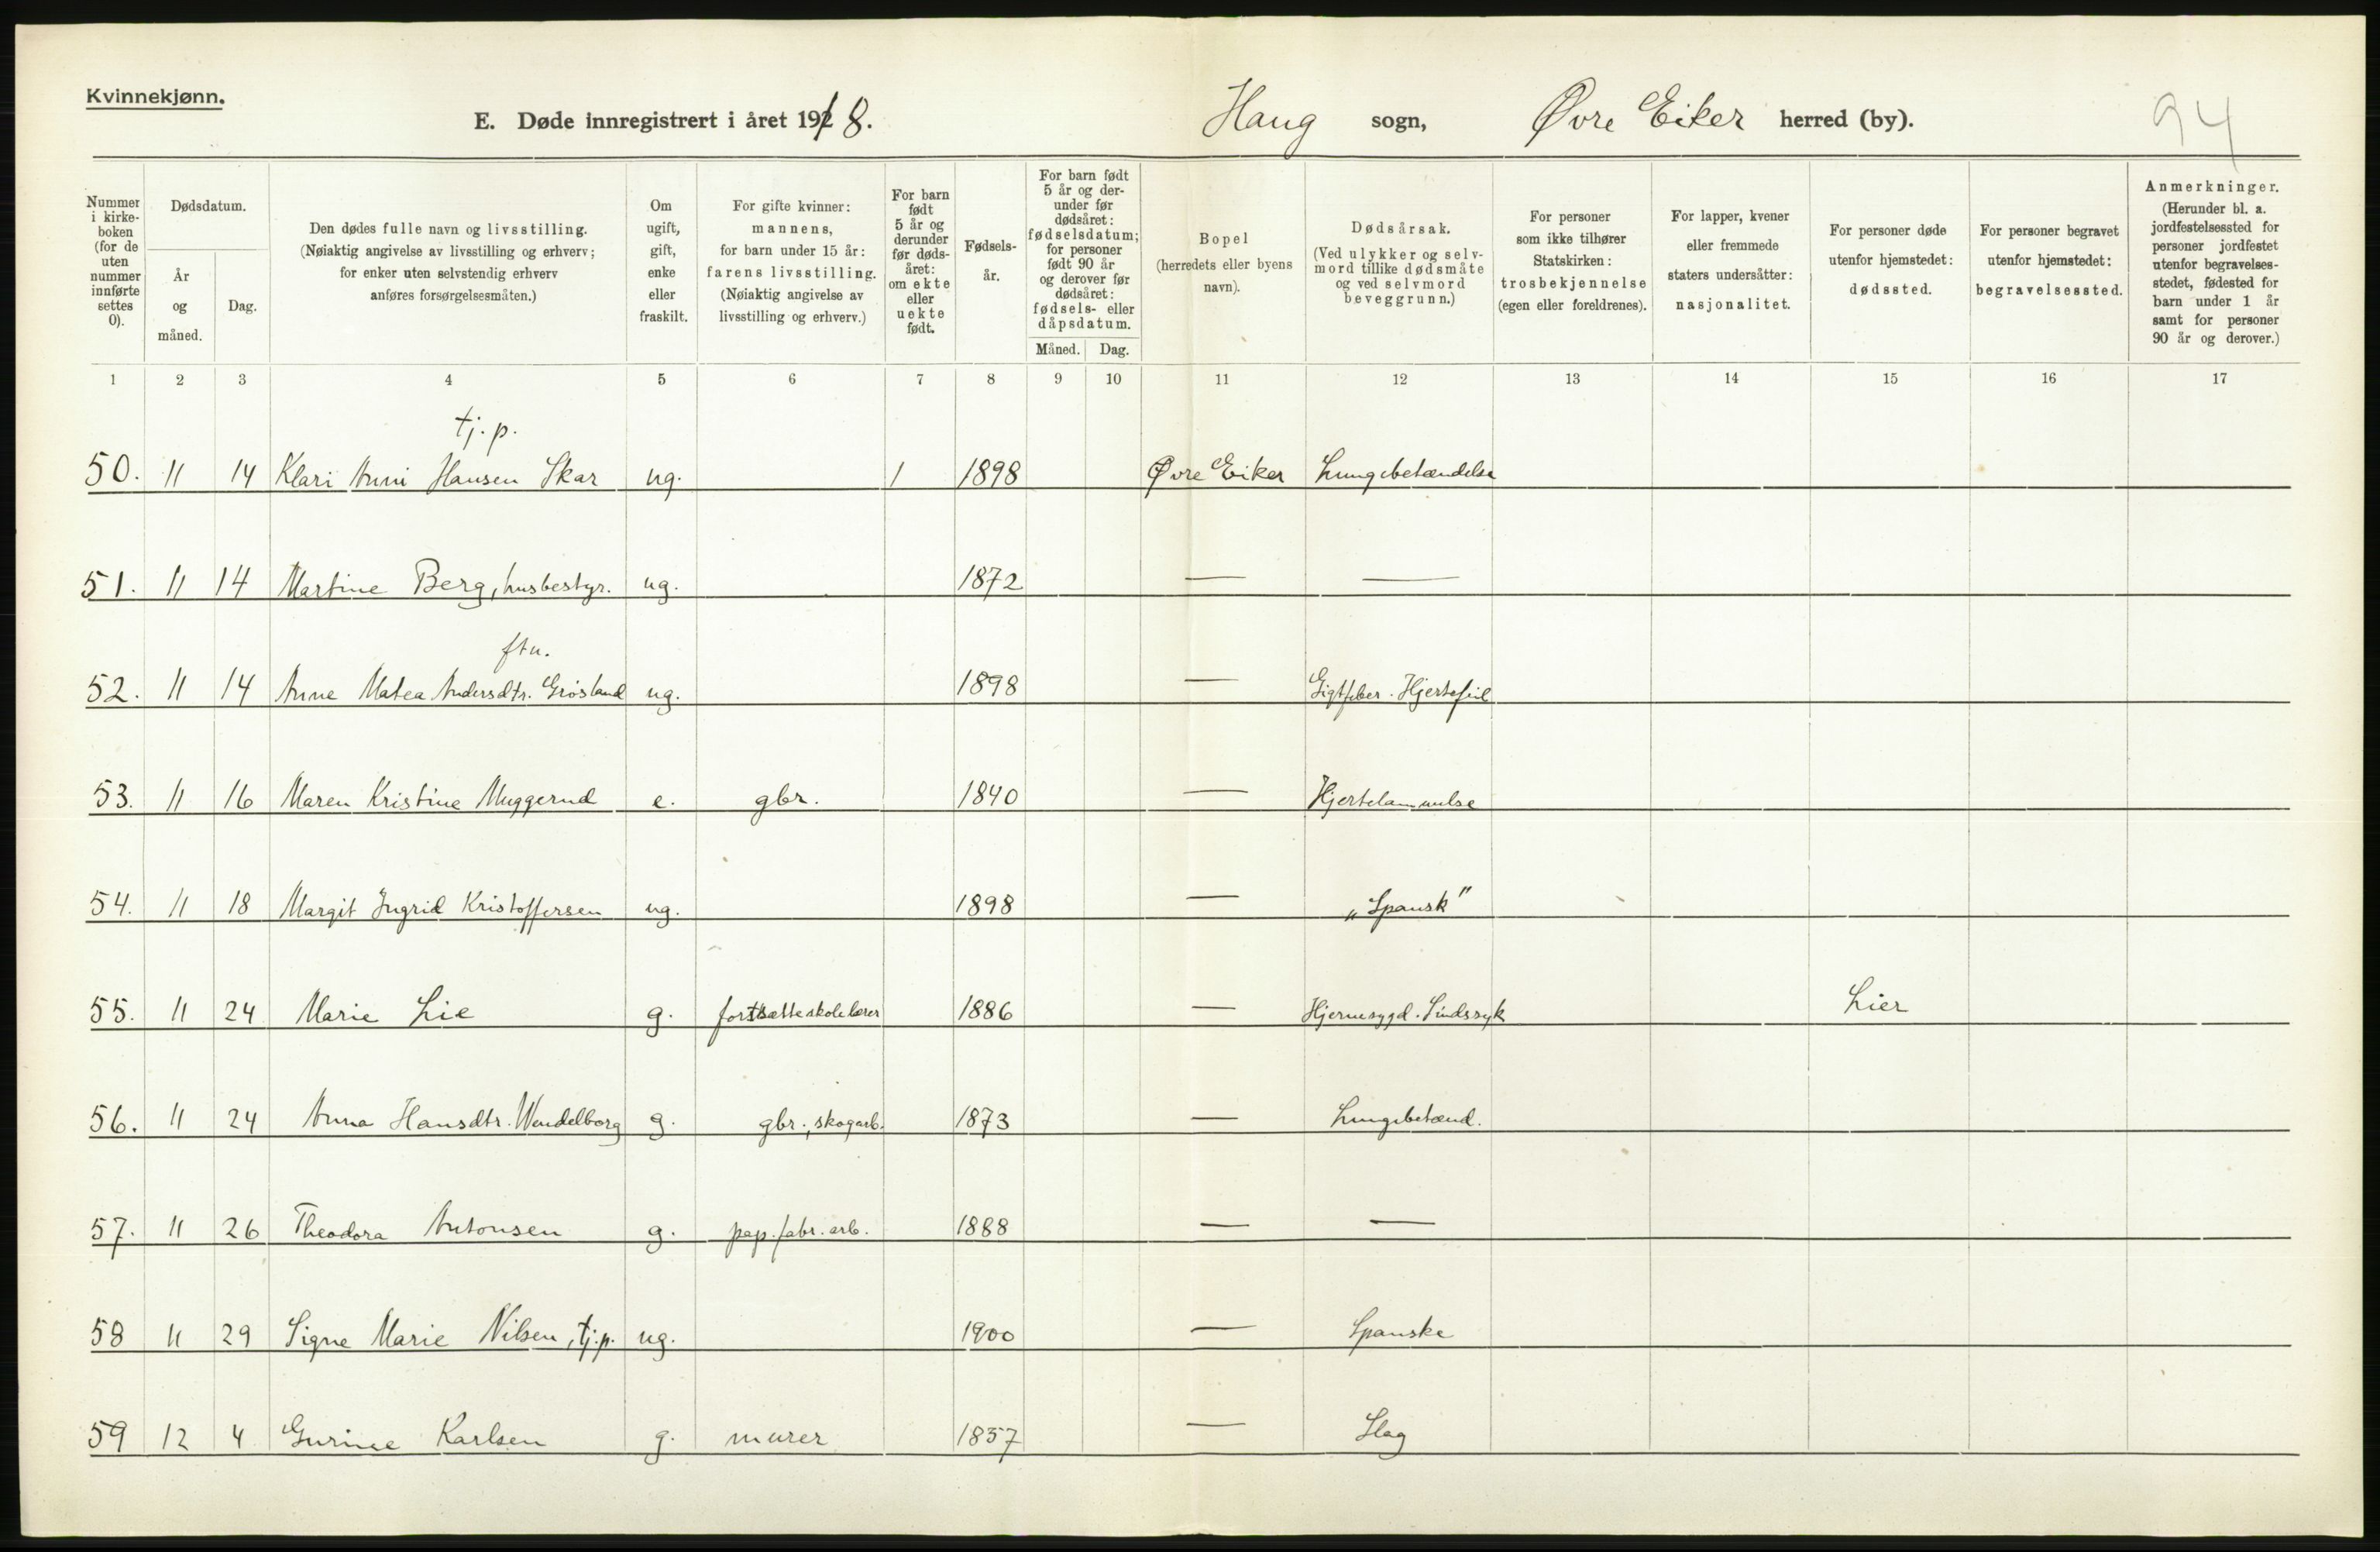 Kvinnekjønn.
E. Døde innregistrert i året 1918. Haug sogn, Øvre Eiker herred (by). 94
Nummer i kirkeboken (for de uten nummer innførte settes 0).
Dødsdatum.
År og måned.
Dag.
Den dødes fulle navn og livsstilling.
(Nøiaktig angivelse av livsstilling og erhverv;
for enker uten selvstendig erhverv
anføres forsørgelsesmåten.)
Om ugift, gift, enke eller fraskilt.
For gifte kvinner:
mannens,
for barn under 15 år:
farens livsstilling.
(Nøiaktig angivelse av
livsstilling og erhverv.)
For barn født 5 år og derunder før dødsåret: om ekte eller uekte født.
Fødselsår.
For barn født 5 år og derunder før dødsåret: fødselsdatum; for personer født 90 år og derover før dødsåret: fødsels- eller dåpsdatum.
Måned. Dag.
Bopel
(herredets eller byens
navn).
Dødsårsak.
(Ved ulykker og selvmord tillike dødsmåte og ved selvmord beveggrunn.)
For personer
som ikke tilhører
Statskirken:
trosbekjennelse
(egen eller foreldrenes).
For lapper, kvener
eller fremmede
staters undersåtter:
nasjonalitet.
For personer døde
utenfor hjemstedet:
dødssted.
For personer begravet
utenfor hjemstedet:
begravelsessted.
Anmerkninger.
(Herunder bl. a.
jordfestelsessted for
personer jordfestet
utenfor begravelses-
stedet, fødested for
barn under 1 år
samt for personer
90 år og derover.)
1 2 3 4 5 6 7 8 9 10 11 12 13 14 15 16 17
tj. p.
50. 11 14 Klari Anni Hansen Skar ug. 1 1898 Øvre Eiker Lungebetændelse
51. 11 14 Martine Berg, husbestyr. ug. 1872 — —
ftu.
52. 11 14 Anne Matea Andersdtr. Grøsland ug. 1898 — Gigtfeber. Hjertefeil
53. 11 16 Maren Kristine Muggerud e. gbr. 1840 — Hjertelammelse
54. 11 18 Margit Ingrid Kristoffersen ug. 1898 — „Spansk"
55. 11 24 Marie Lie g. fortsætteskolelærer 1886 — Hjernesygd. Sindssyk Lier
56. 11 24 Anna Hansdtr. Wendelborg g. gbr., skogarb. 1873 — Lungebetænd.
57. 11 26 Theodora Antonsen g. pap.fabr.arb. 1888 — —
58 11 29 Signe Marie Nilsen, tj.p. ug. 1900 — Spanske
59 12 4 Gurine Karlsen g. murer 1857 — Slag